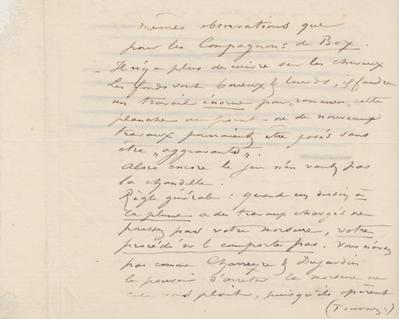 mêmes observations que
pour les Compagnons de Box.
Il n'y a plus de cuivre sur les cheveux
Les fonds sont boueux & lourds, il faudrait
un travail énorme pour ramener cette
planche au point - ou de nouveaux
travaux pourraient être posés sans
être "aggravants".
Alors encore le jeu n'en vaut pas
la chandelle.
Règle générale : quand un dessin à
la plume a des travaux chargés ne
pas votre morsure, votre
procédé ne le comporte pas. Vous n'avez
pas comme & Dujardin
le pouvoir d'arrêter la morsure où
cela vous plaît, puisqu'ils opèrent
(Tournez)